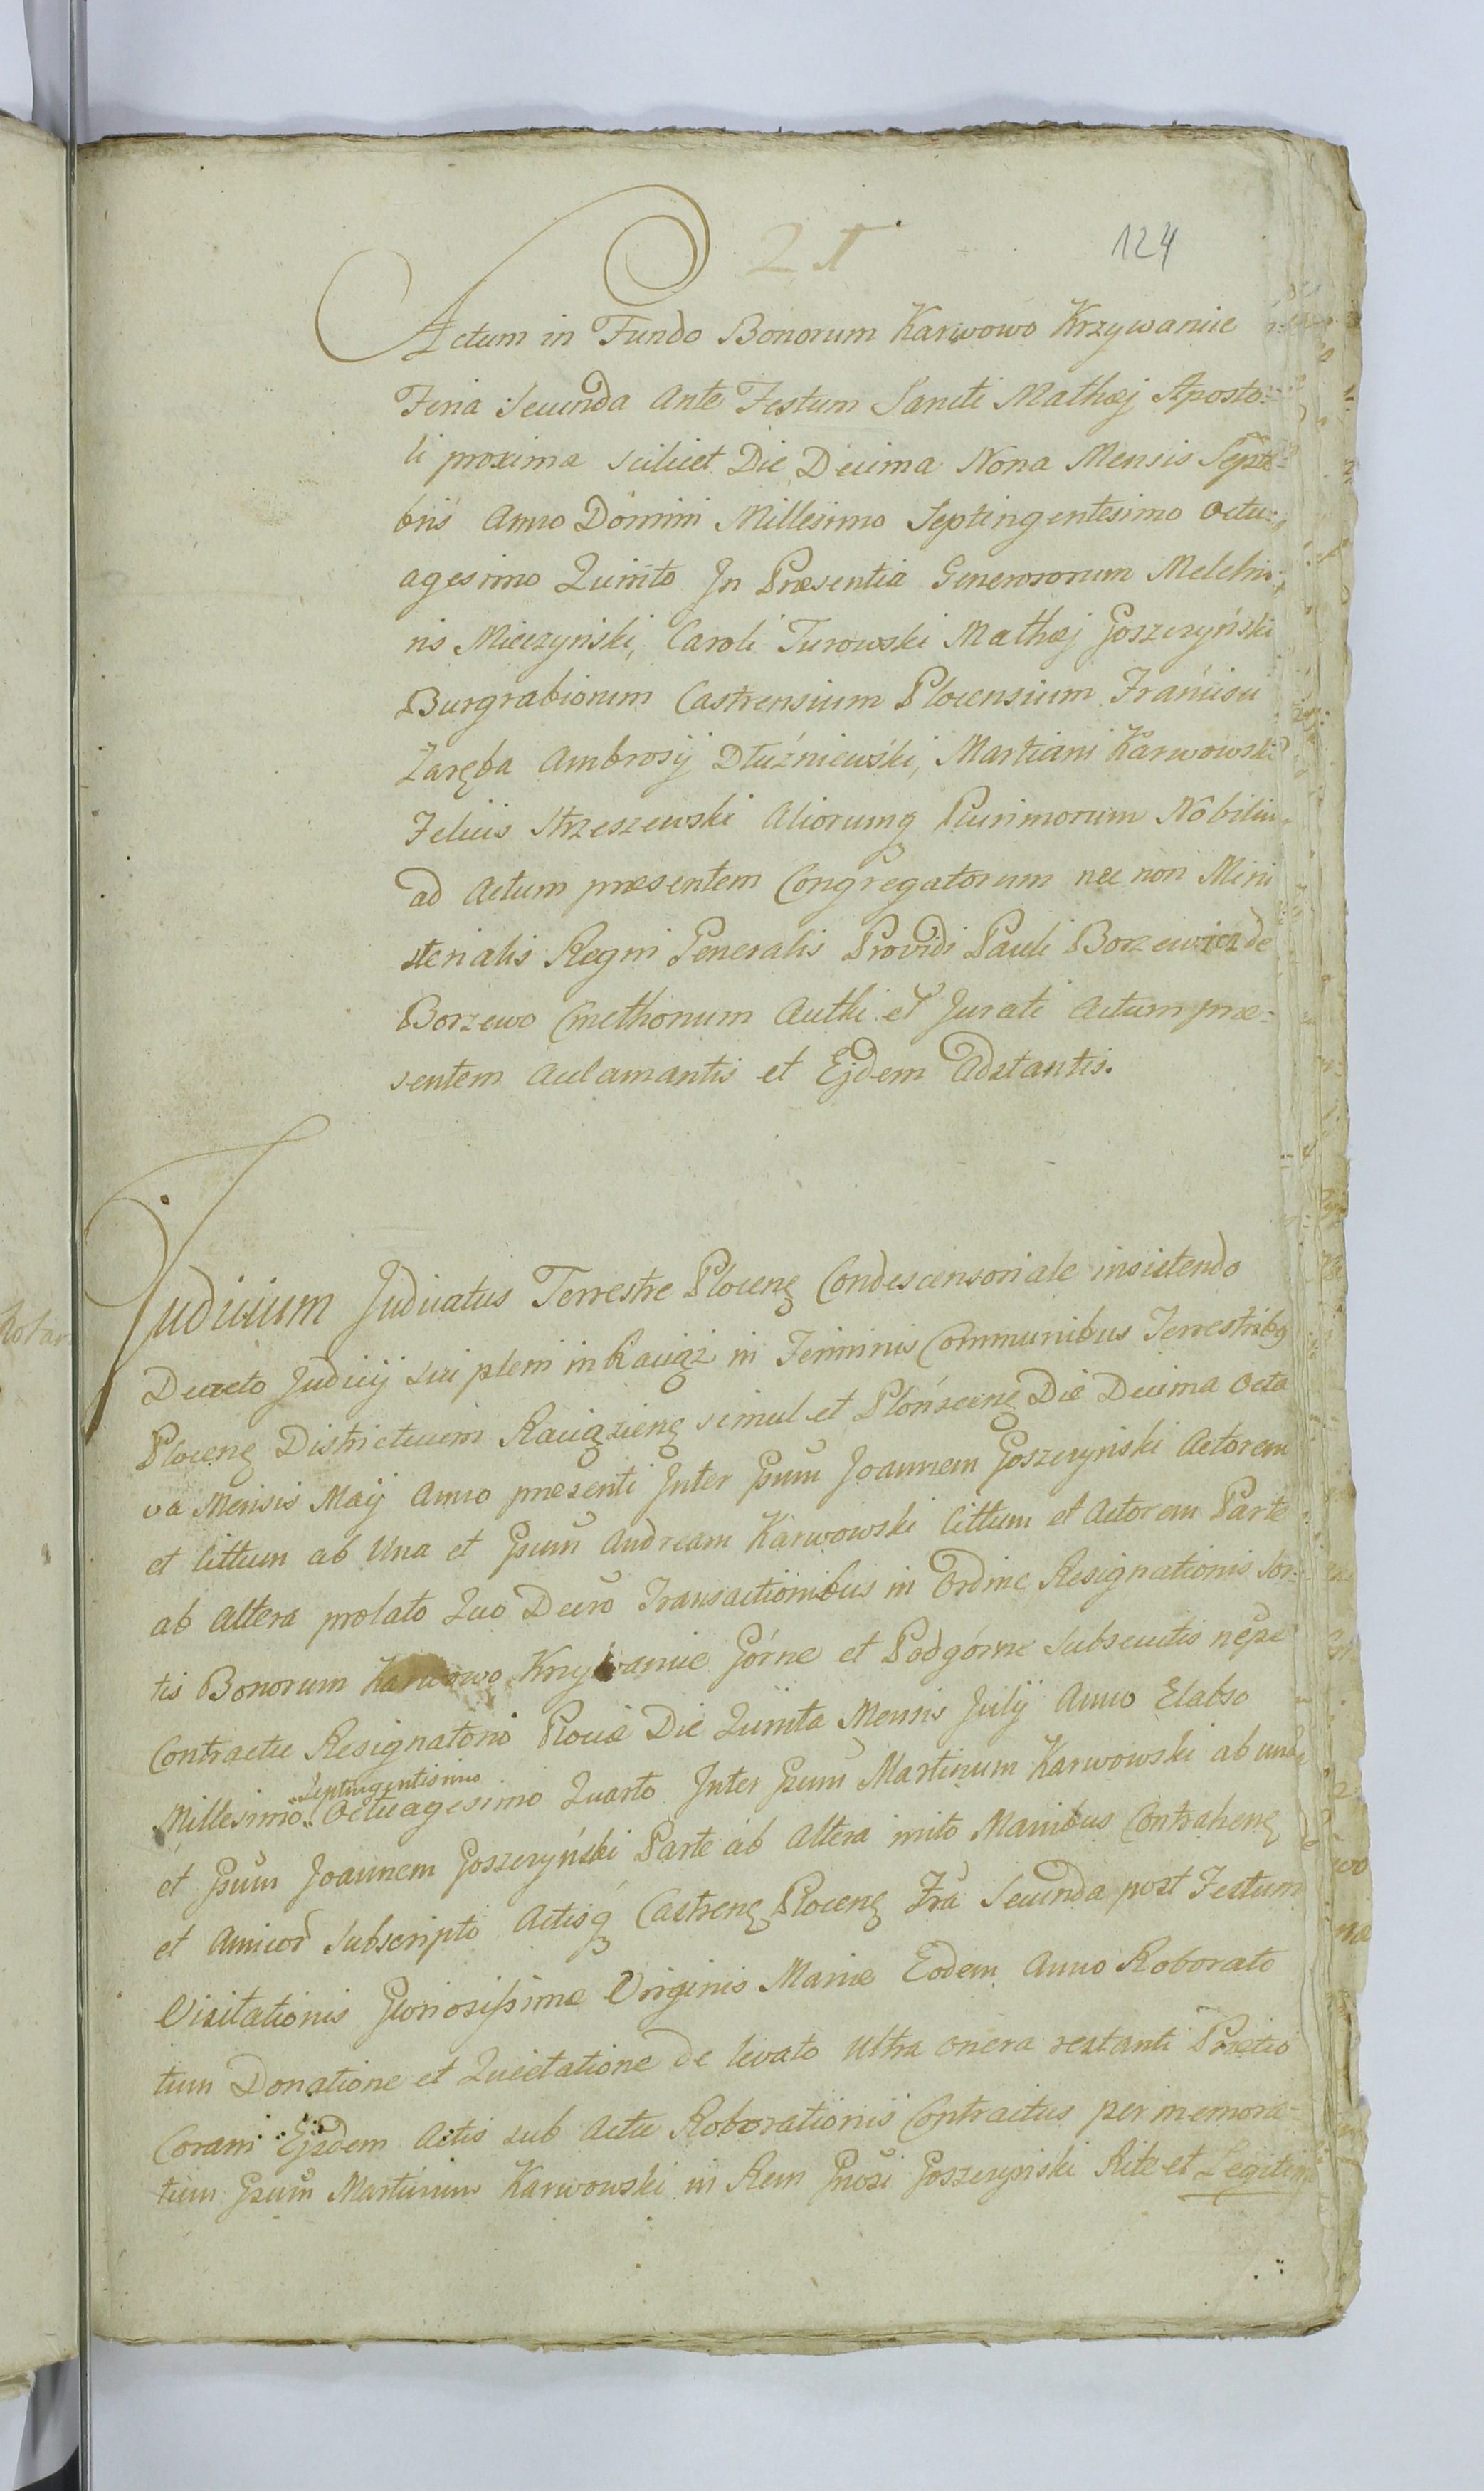 21
124
Actum in Fundo Bonorum Karwowo Krzywanice
Feria Secunda Ante Festum Sancti Mathæj Aposto:
li proxima scilicet Die Decima Nona Mensis Septe
bris Anno Domini Millesimo Septingentesimo Octu:
agesimo Quinto In Præsentia Generosorum Melchio
ris Mieczynski, Caroli Turowski Mathæj Goszczyński
Burgrabiorum Castrensium Plocensium Francisci
Zaręba Ambrosij Dłużniewski, Martiani Karwowski
Felicis Strzeszewski Aliorumq Plurimorum Nobiliu
ad Actum præsentem Congregatorum nec non Mini
sterialis Regni Generalis Providi Pauli Borzewicz de
Borzewo Cmethonum Authi et Jurati Actum præ:
sentem Acclamantis et Ejdem Adstantis.
Judicium Judicatus Terrestre Plocenς Condescensoriale insistendo
Decreto Judicij sui pleni in Raciąż in Terminis Communibus Terrestribq
Plocenς Districtuum Raciązienς simul et Plońscenς Die Decima Octa
va Mensis Maij Anno præsenti Inter Gsum Joannem Goszczynski Actorem
et Cittum ab Una et Gsum Andream Karwowski Cittum et Actorem Parte
ab altera prolato Quo Decro Transactionibus in Ordine Resignationis Sor:
tis Bonorum Karwowo Krzywanice Górne et Podgórne Subsecutis nepe
Contractu Resignatorio Plocia Die Quinta Mensis Julij Anno Elabso
Millesimo Septingentesimo Octuagesimo Quarto Inter Gsum Martinum Karwowski ab una
et Gsum Joannem Goszczyński Parte ab altera inito Manibus Contrahenς
et Amicor Subscripto Actisq Castrenς Plocenς Fra Secunda post Festum
Visitationis Gloriosissimæ Virginis Mariæ Eodem Anno Roborato
tum Donatione et Quietatione de levato Ultra onera restanti Prætio
Coram Ejsdem Actis sub Actu Roborationis Contractus per memora-
tum Gsum Martinum Karwowski in Rem Gnosi Goszczynski Rite et Legitime